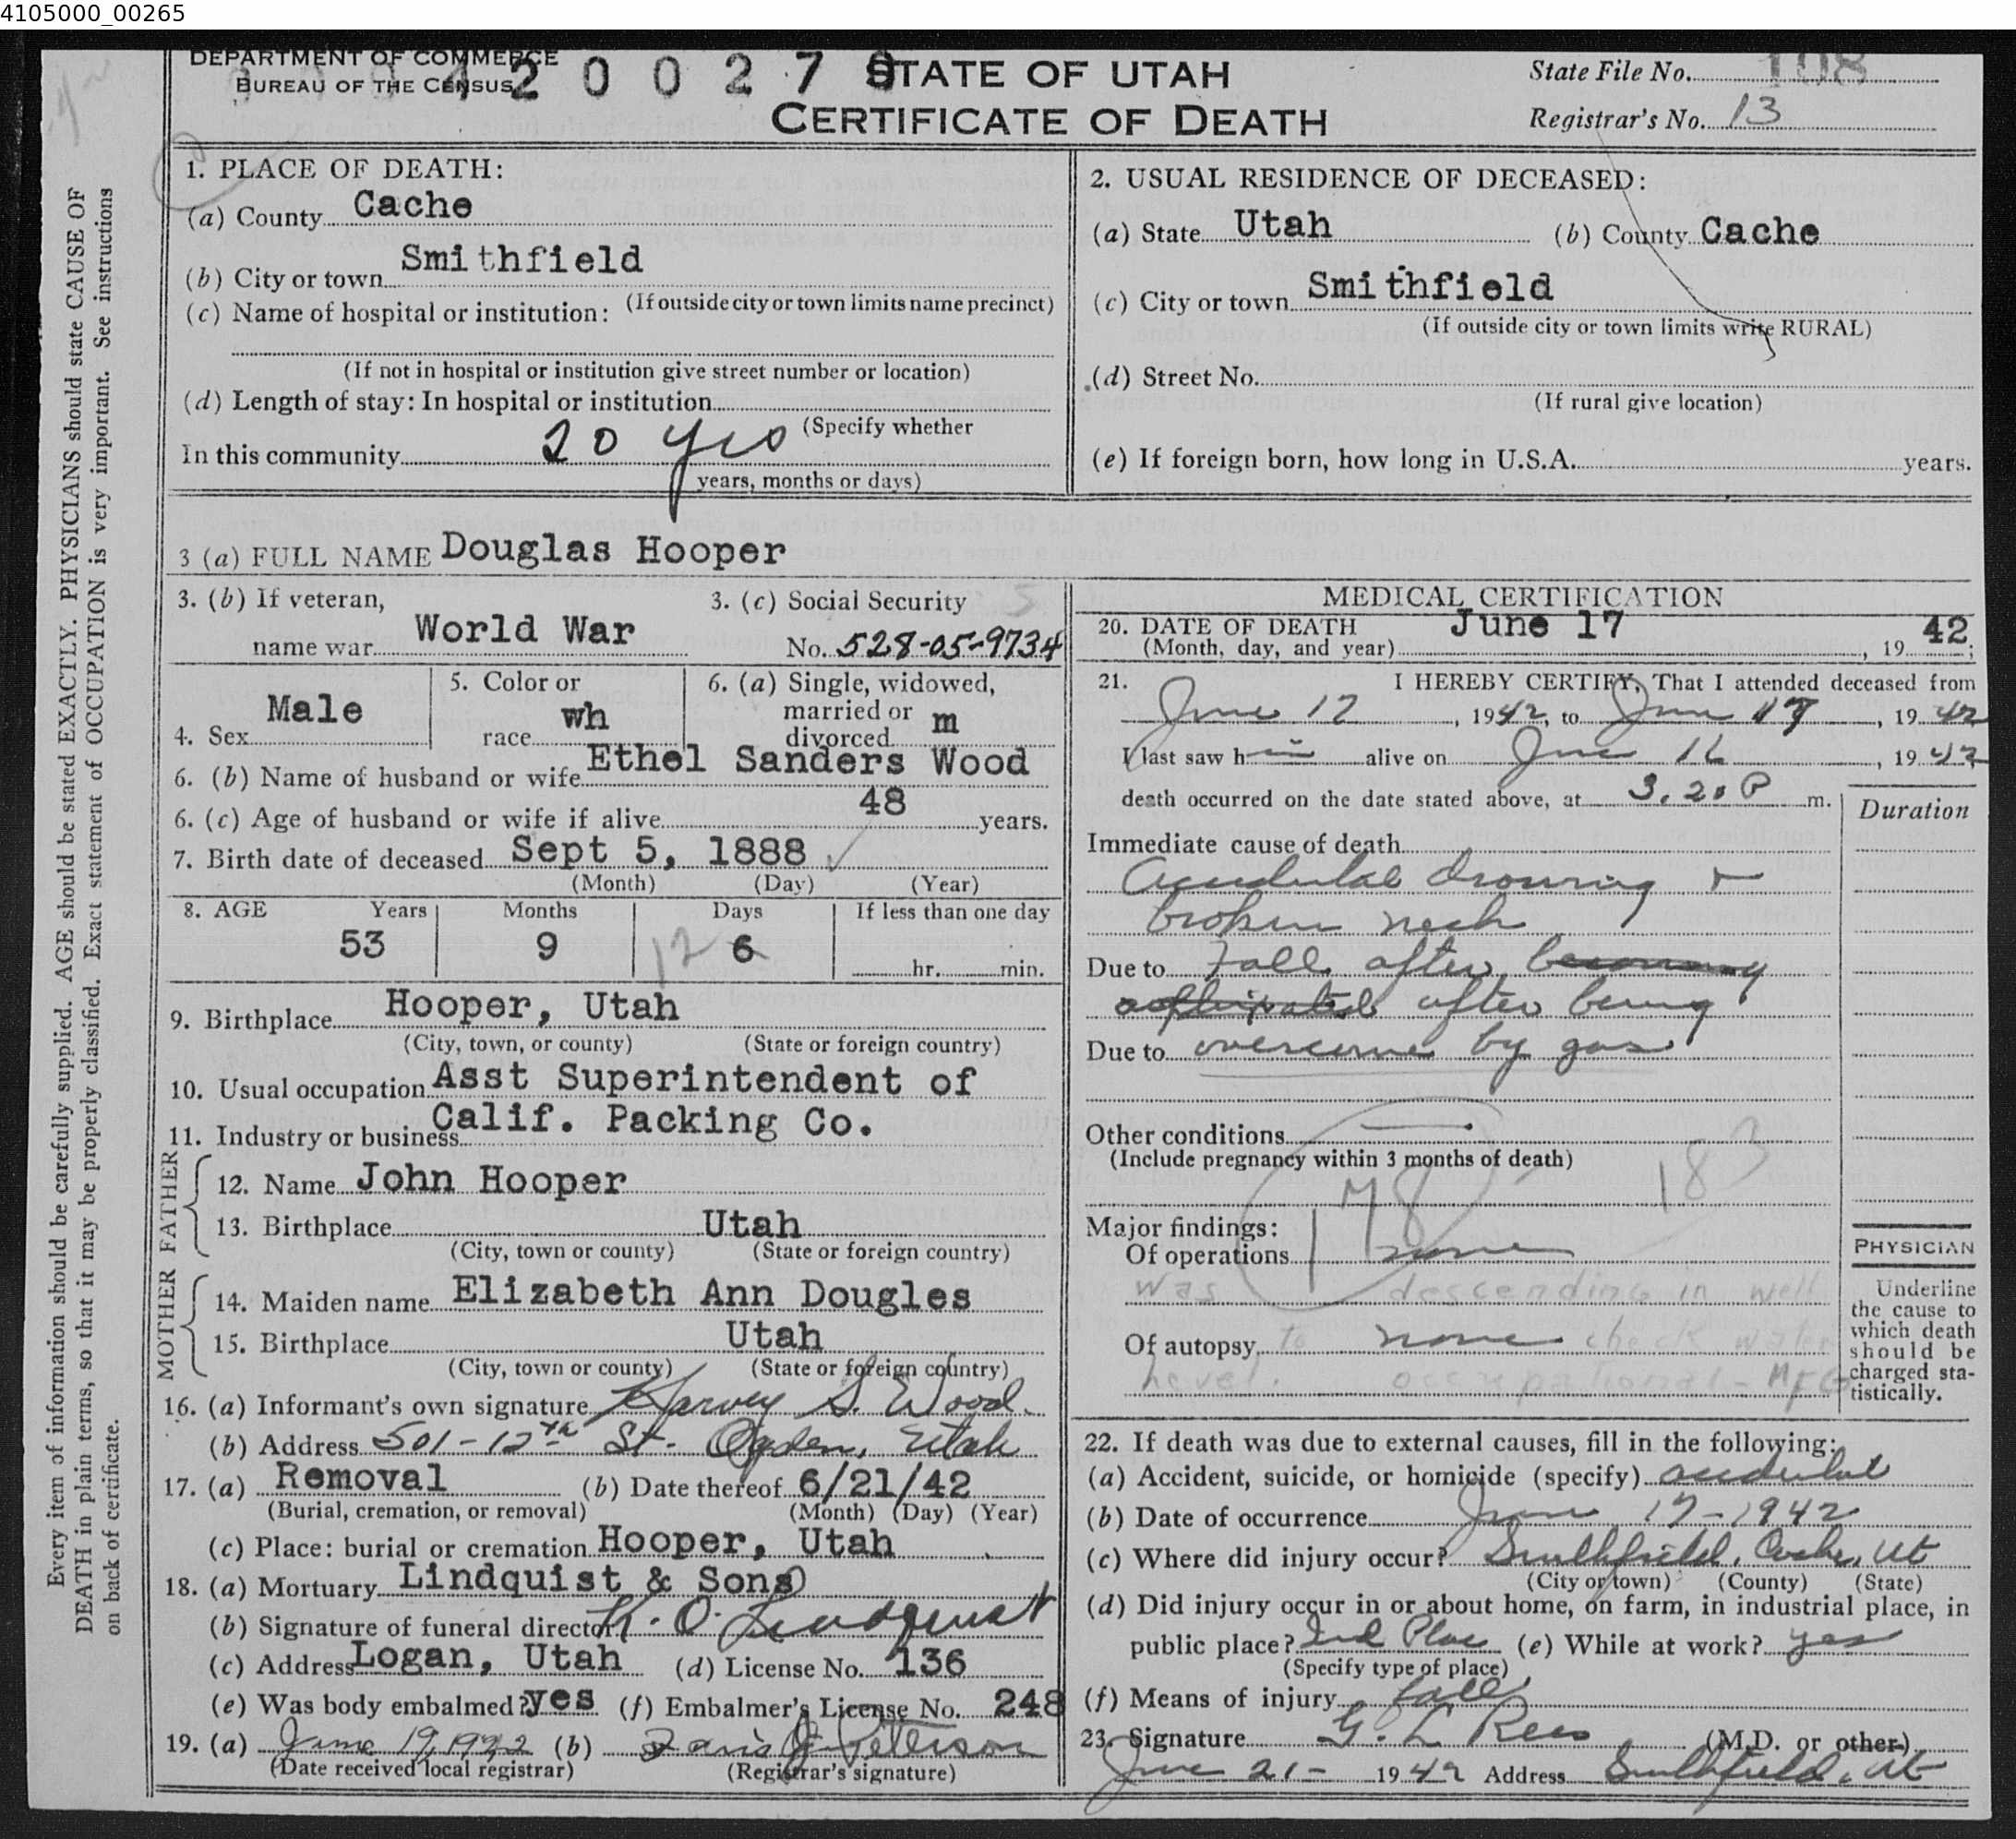 4105000_00265
DEPARTMENT OF COMMERCE
BUREAU OF THE CENSUS
STATE OF UTAH
CERTIFICATE OF DEATH
State File No. 108
Registrar's No. 13
1. PLACE OF DEATH:
(a) County Cache
(b) City or town Smithfield
(If outside city or town limits name precinct)
(c) Name of hospital or institution:
(If not in hospital or institution give street number or location)
(d) Length of stay: In hospital or institution
(Specify whether
In this community 20 yrs
years, months or days)
2. USUAL RESIDENCE OF DECEASED:
(a) State Utah (b) County Cache
(c) City or town Smithfield
(If outside city or town limits write RURAL)
(d) Street No.
(If rural give location)
(e) If foreign born, how long in U.S.A. years.
3 (a) FULL NAME Douglas Hooper
3. (b) If veteran,
name war World War
3. (c) Social Security
No. 528-05-9734
4. Sex Male
5. Color or
race wh
6. (a) Single, widowed,
married or
divorced m
6. (b) Name of husband or wife Ethel Sanders Wood
6. (c) Age of husband or wife if alive 48 years.
7. Birth date of deceased Sept 5, 1888
(Month) (Day) (Year)
8. AGE Years Months Days If less than one day
53 9 12 6 hr. min.
9. Birthplace Hooper, Utah
(City, town, or county) (State or foreign country)
10. Usual occupation Asst Superintendent of
11. Industry or business Calif. Packing Co.
FATHER
12. Name John Hooper
13. Birthplace Utah
(City, town or county) (State or foreign country)
MOTHER
14. Maiden name Elizabeth Ann Dougles
15. Birthplace Utah
(City, town or county) (State or foreign country)
16. (a) Informant's own signature Harvey S. Wood.
(b) Address 501-12th St. Ogden, Utah
17. (a) Removal (b) Date thereof 6/21/42
(Burial, cremation, or removal) (Month) (Day) (Year)
(c) Place: burial or cremation Hooper, Utah
18. (a) Mortuary Lindquist & Sons
(b) Signature of funeral director K. O. Lindquist
(c) Address Logan, Utah (d) License No. 136
(e) Was body embalmed? yes (f) Embalmer's License No. 248
19. (a) June 19, 1942 (b) Peterson
(Date received local registrar) (Registrar's signature)
MEDICAL CERTIFICATION
20. DATE OF DEATH June 17
(Month, day, and year) , 19 42;
21. I HEREBY CERTIFY, That I attended deceased from
June 12, 1942, to June 17, 19 42
I last saw him alive on June 16, 19 42
death occurred on the date stated above, at 3.20 P m.
Duration
Immediate cause of death
Accidental drowning +
broken neck
Due to Fall after becoming
asphixiated after being
Due to overcome by gas
Other conditions
(Include pregnancy within 3 months of death)
178 183
Major findings:
Of operations none
was descending in well
Of autopsy to none check water
level. occupational - MFG
PHYSICIAN
Underline
the cause to
which death
should be
charged sta-
tistically.
22. If death was due to external causes, fill in the following:
(a) Accident, suicide, or homicide (specify) accidental
(b) Date of occurrence June 17-1942
(c) Where did injury occur? Smithfield, Cache, Ut
(City or town) (County) (State)
(d) Did injury occur in or about home, on farm, in industrial place, in
public place? Ind Place (e) While at work? yes
(Specify type of place)
(f) Means of injury fall
23. Signature G. L. Rees (M.D. or other)
June 21- 1942 Address Smithfield, Ut
Every item of information should be carefully supplied. AGE should be stated EXACTLY. PHYSICIANS should state CAUSE OF
DEATH in plain terms, so that it may be properly classified. Exact statement of OCCUPATION is very important. See instructions
on back of certificate.